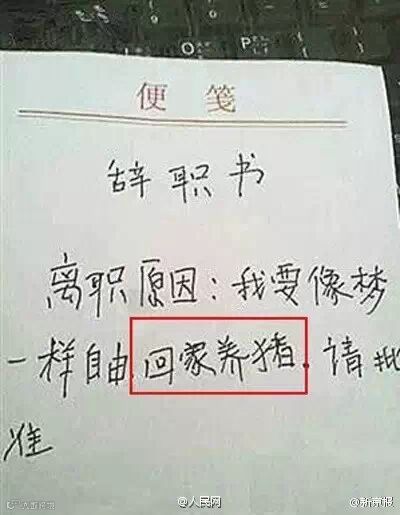 O P
便笺
辞职书
离职原因:我要像梦
一样自由.回家养猪.请批
准
@人民网
@新京报